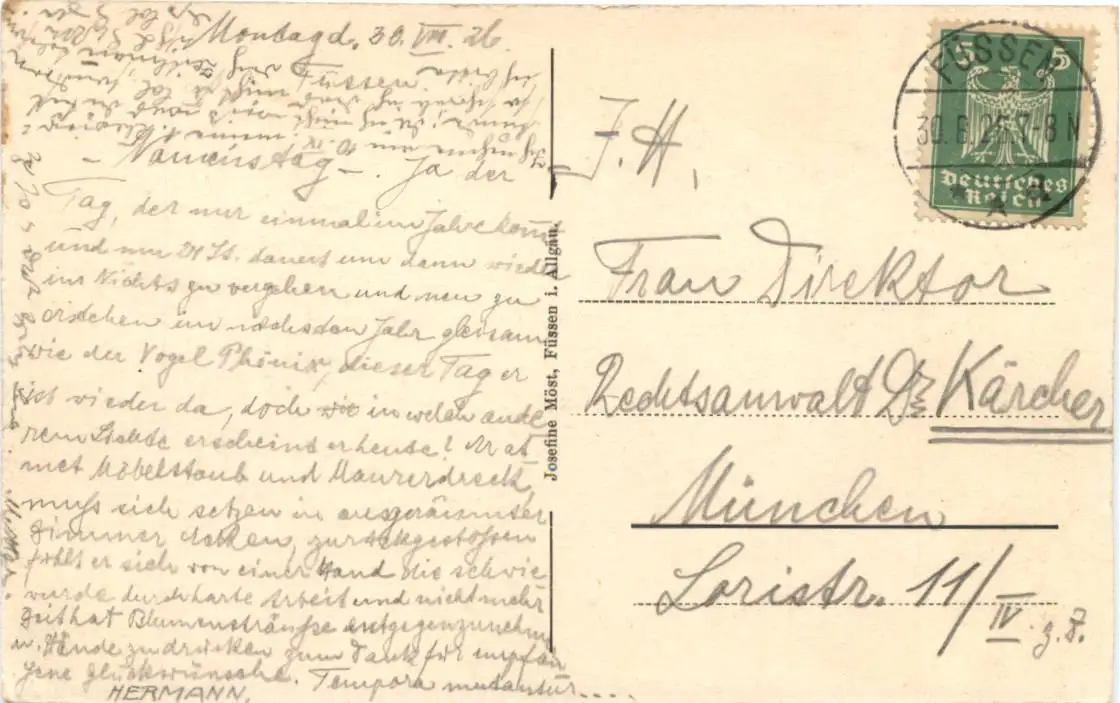 Montagd. 30. VIII. 26.
Füssen.
- Namenstag -. Ja der
Tag, der nur einmal im Jahre kommt
und nur 24 St. dauert um dann wieder
ins Nichts zu vergehen und neu zu
erstehen im nächsten Jahr gleichsam
wie der Vogel Phönix, dieser Tag er
ist wieder da, doch wie in welch ande
rem Lichte erscheint er heute! Er at
met Möbelstaub und Maurerdreck,
muss sich setzen in ausgeräumter
Zimmer Ecken, zurückgestossen
fühlt er sich von einer Hand die schwie
wurde durch harte Arbeit und nicht mehr
Zeit hat Blumensträusse entgegenzunehm
u. Hände zu drücken zum Dank für empfan
gene Glückwünsche. Tempora mutantur....
HERMANN.
Josefine Möst, Füssen i. Allgäu.
FÜSSEN
30.8.26.7-8 N
5 5
Deutsches
Reich
J. H,
Frau Direktor
Rechtsanwalt Dr Kärcher
München
Loristr. 11/IV
z. Z.